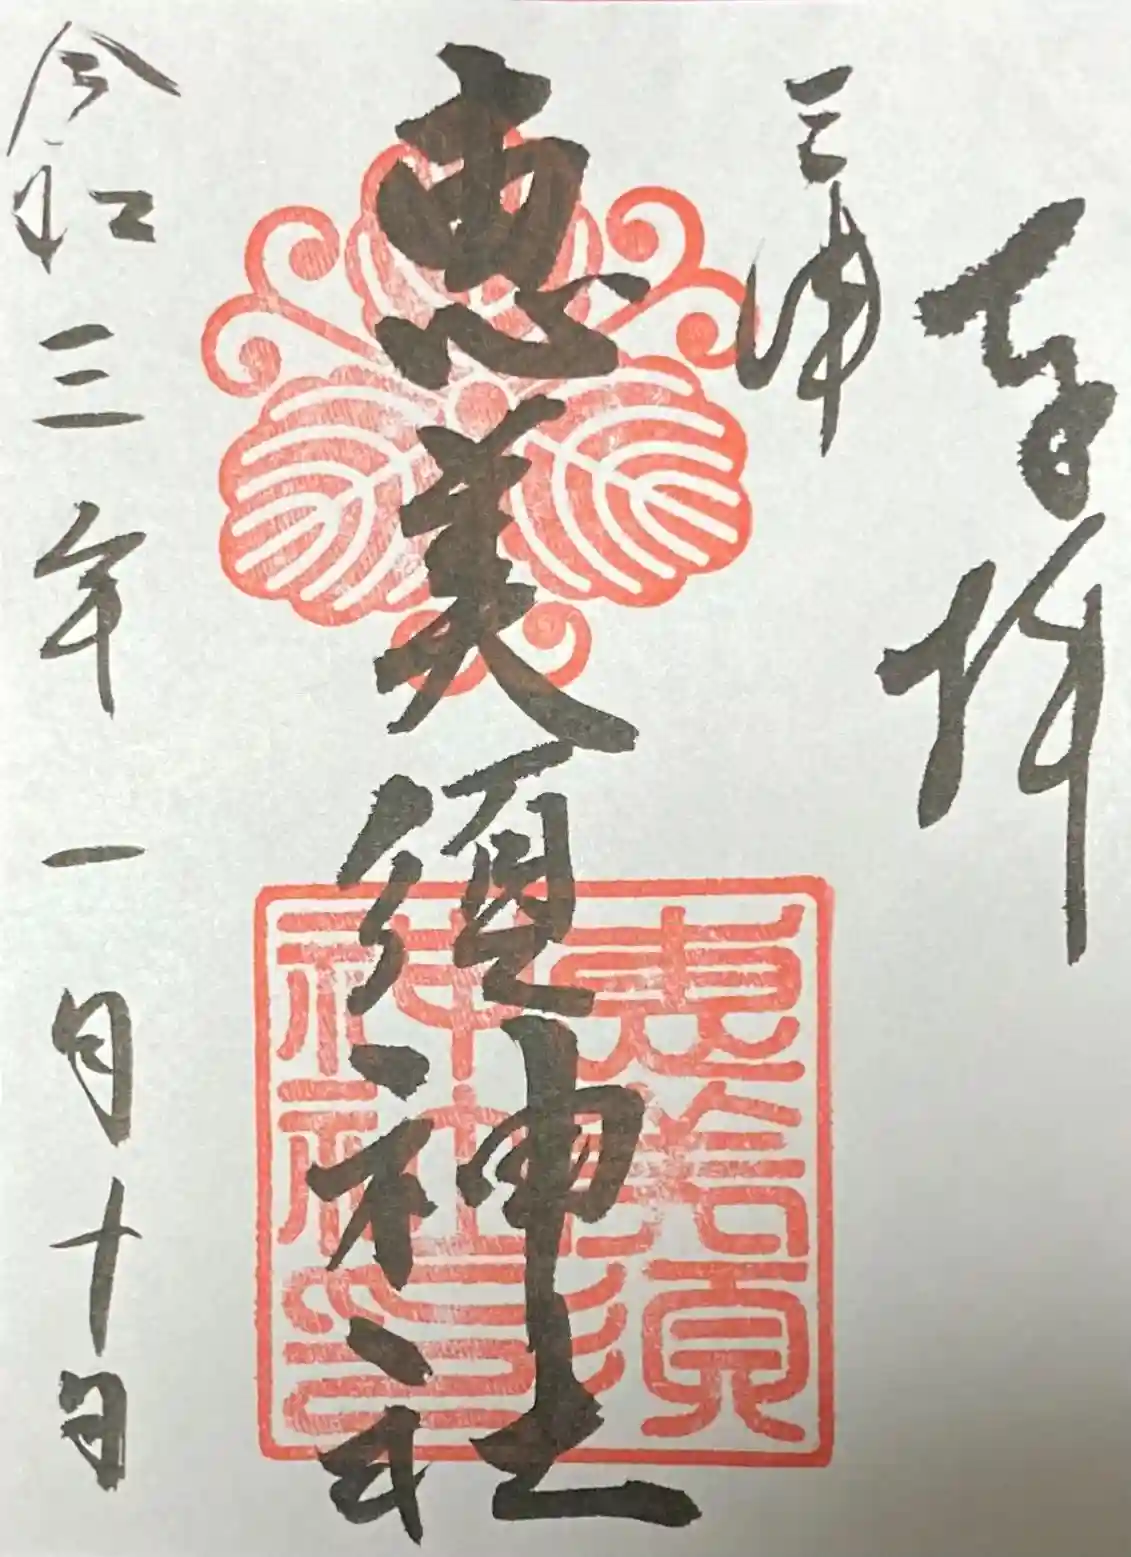 奉拝
三津
恵美須神社
令和三年一月十日
恵須
神社印